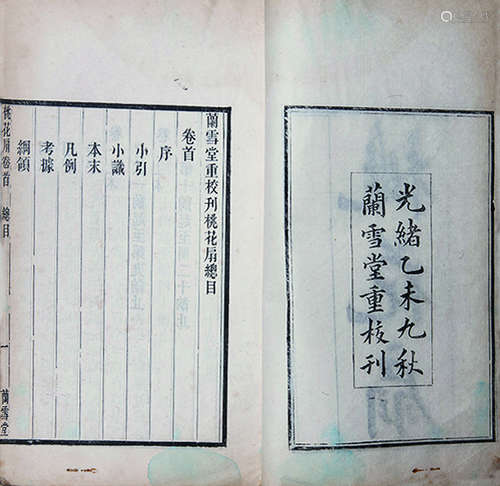 光緒乙未九秋
蘭雪堂重校刊
蘭雪堂重校刊桃花扇總目
卷首
序
小引
小識
本末
凡例
考據
綱領
桃花扇卷首
總目
一
蘭雪堂